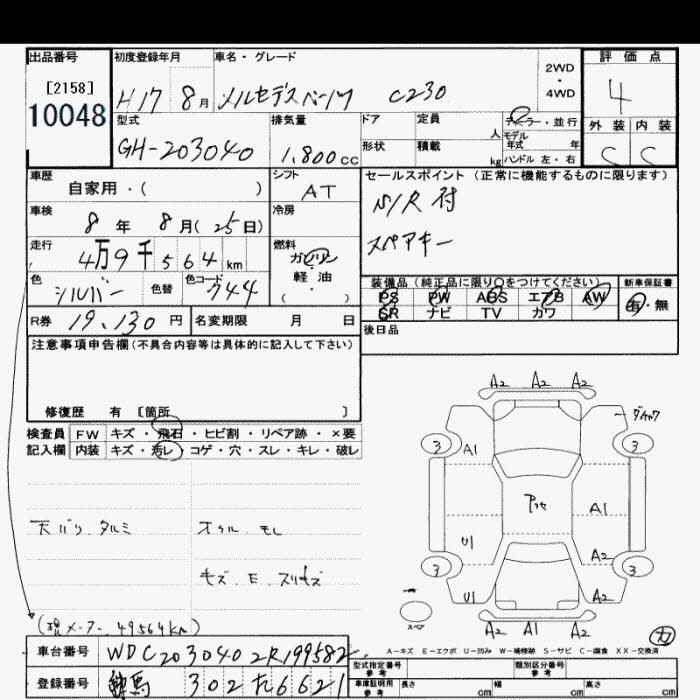 出品番号 初度登録年月 車名・グレード 2WD・4WD 評価点
[2158] H17 8月 メルセデスベンツ C230 4
10048
型式 排気量 ドア 定員 人 ディーラー・並行 外装 内装
GH-203040 1,800cc 形状 積載 kg モデル年式 年 C C
ハンドル 左・右
車歴 シフト セールスポイント(正常に機能するものに限ります)
自家用・( ) AT N/R付
車検 冷房
8年 8月(25日) スペアキー
走行 燃料
4万9千564km ガソリン
色 色替 色コード 軽・油
シルバー 744 ( )
装備品(純正品に限り○をつけてください) 新車保証書
PS PW ABS エアB AW 有・無
SR ナビ TV カワ
R券 19,130円 名変期限 月 日 後日品
注意事項申告欄(不具合内容等は具体的に記入して下さい)
修復歴 有 [箇所 ]
検査員 FW キズ・飛石・ヒビ割・リペア跡・×要
記入欄 内装 キズ・汚レ・コゲ・穴・スレ・キレ・破レ
A2 A2 A2
3 A1 3
A1
U1 A2
3 3
U1 A2
A2 A1 A2
スペア
天バリ タルミ オイル モレ
キズ E スリキズ
(現メーター 49564km)
A-キズ E-エクボ U-凹み W-補修跡 S-サビ C-腐食 XX-交換済
車台番号 WDC2030402R199582 型式指定番号 参考 類別区分番号 参考
登録番号 群馬 302 6621 車庫証明用 参考 長さ cm 幅 cm 高さ cm